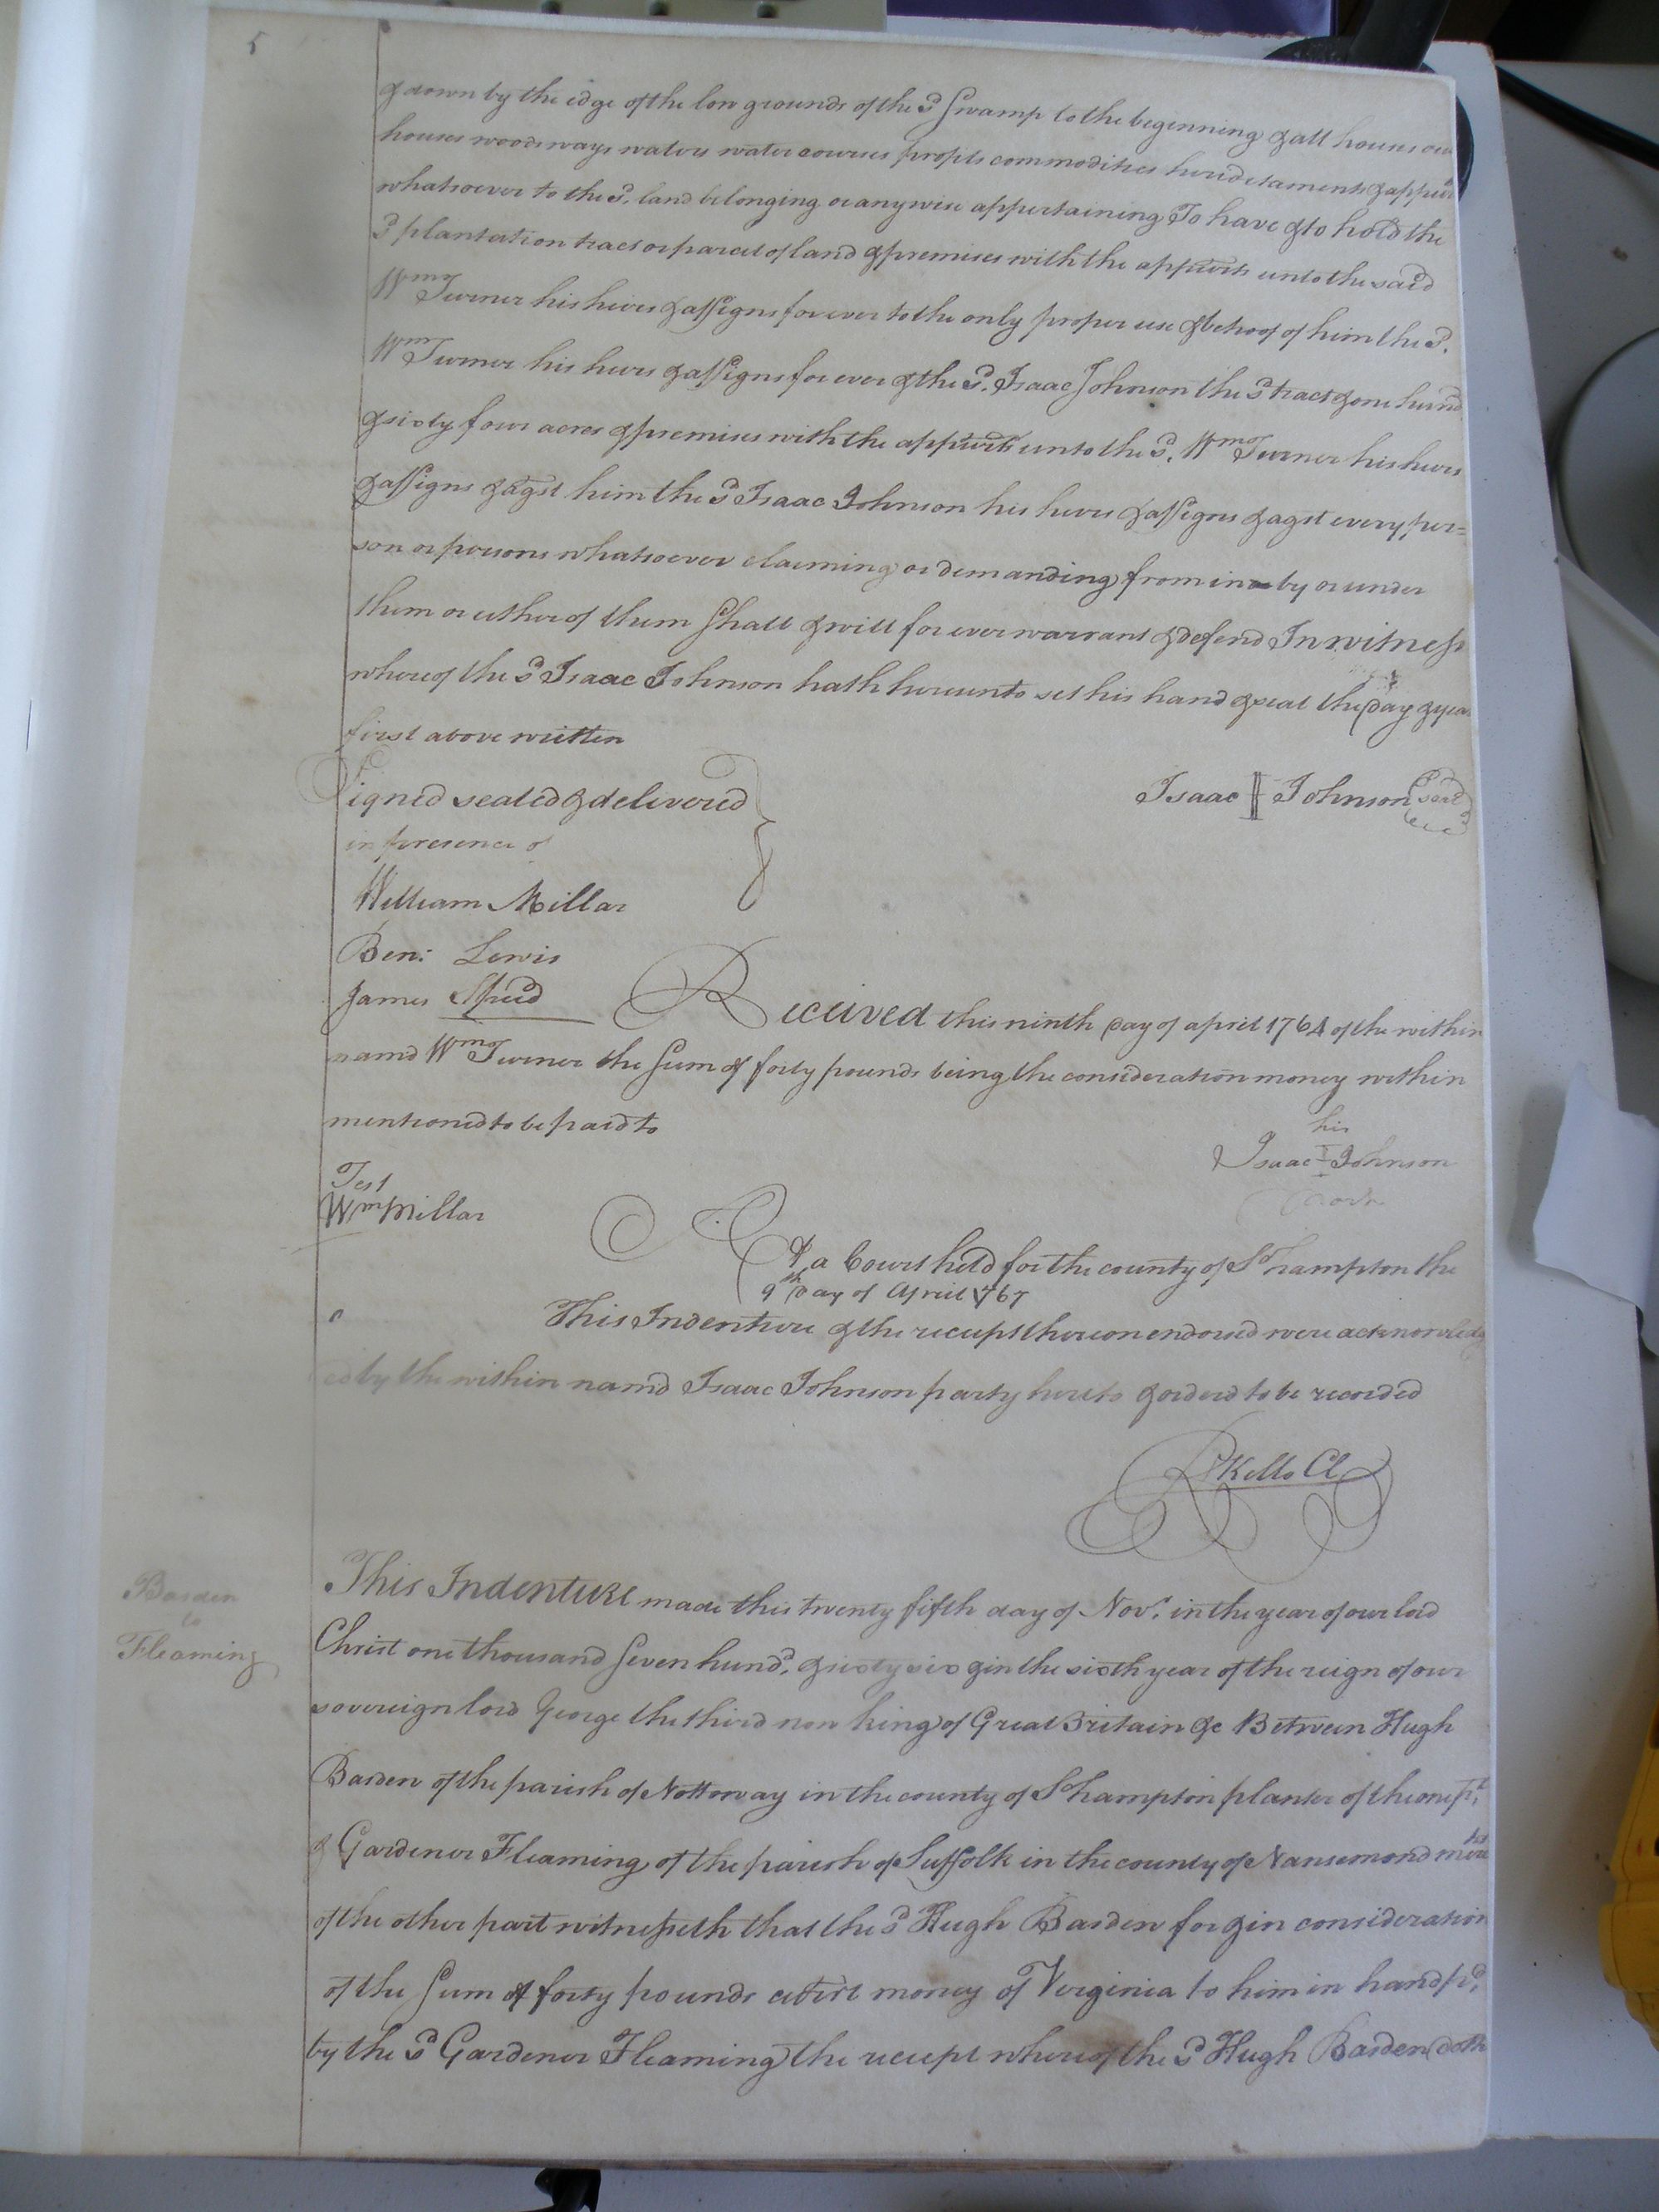 5
& down by the edge of the low grounds of the sd Swamp to the beginning & all houses out
houses woods ways waters water courses profits commodities heridetaments & appurts
whatsoever to the sd. land belonging or anywise appertaining To have & to hold the
sd plantation tract or parcel of land & premises with the appurts unto the said
Wm Turner his heirs & assigns for ever to the only proper use & behoof of him the sd.
Wm Turner his heirs & assigns for ever & the sd. Isaac Johnson the sd tract & one hund
& sixty four acres & premises with the appurts unto the sd. Wm Turner his heirs
& assigns & agst him the sd Isaac Johnson his heirs & assigns & agst every per=
son or persons whatsoever claiming or demanding from in by or under
them or either of them Shall & will for ever warrant & defend In witness
whereof the sd Isaac Johnson hath hereunto set his hand & seal the day & year
first above written
Signed sealed & delivered
in presence of
Isaac Johnson seal
William Millar
Ben: Lewis
James Speed
Received this ninth day of april 1764 of the within
namd Wm Turner the Sum of forty pounds being the consideration money within
mentioned to be paid to
his
Isaac I Johnson
mark
Test
Wm Millar
At a Court held for the county of So hampton the
9th Day of April 1767
This Indenture & the receipt thereon endorsed were acknowledg
ed by the within namd Isaac Johnson party hereto & orderd to be recorded
R Kello Cl
Barden
to
Fleaming
This Indenture made this twenty fifth day of Novr. in the year of our lord
Christ one thousand Seven hundd. & sixty six & in the sixth year of the reign of our
sovereign lord George the third now king of Great Britain &c Between Hugh
Barden of the parish of Nottoway in the county of So hampton planter of the one pt.
& Gardener Fleaming of the parish of Suffolk in the county of Nansemond
of the other part witnesseth that the sd Hugh Barden for & in consideration
of the Sum of forty pounds money of Verginia to him in hand pd.
by the sd Gardener Fleaming the receipt whereof the sd Hugh Barden doth